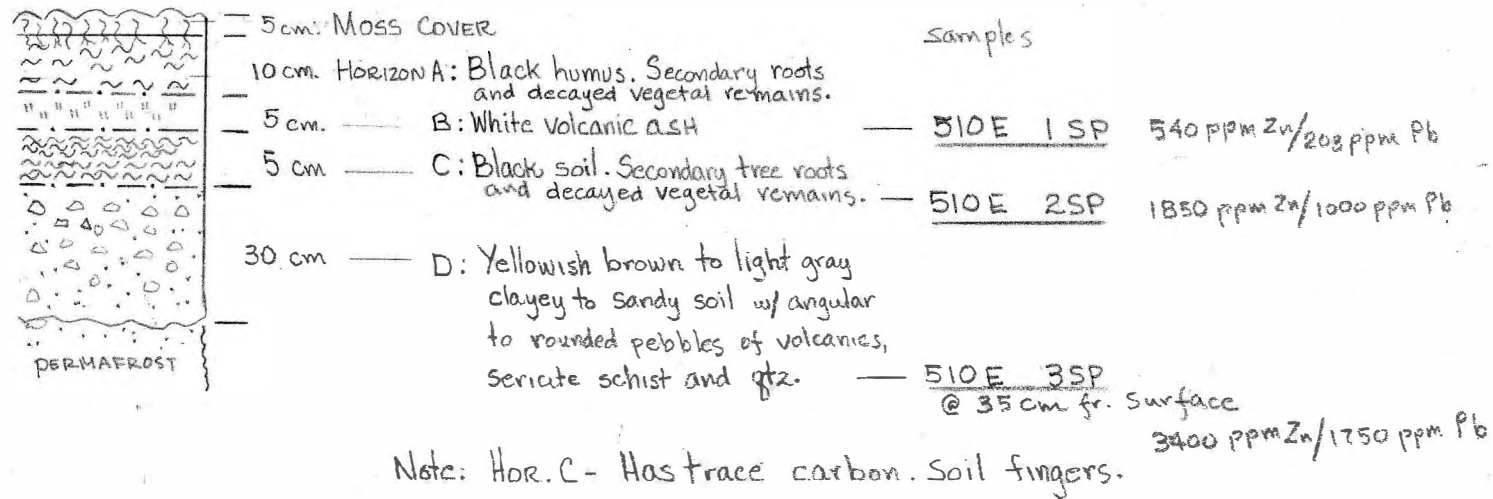 5 cm: MOSS COVER
samples
10 cm. HORIZON A: Black humus. Secondary roots
and decayed vegetal remains.
5 cm. B: White Volcanic ASH 510E 1SP 540 ppm Zn/203 ppm Pb
5 cm C: Black soil. Secondary tree roots
and decayed vegetal remains. 510E 2SP 1850 ppm Zn/1000 ppm Pb
30 cm D: Yellowish brown to light gray
clayey to sandy soil w/ angular
to rounded pebbles of volcanics,
PERMAFROST
sericate schist and qtz. 510E 3SP
@ 35 cm fr. surface
3400 ppm Zn/1750 ppm Pb
Note: HOR. C - Has trace carbon. Soil fingers.